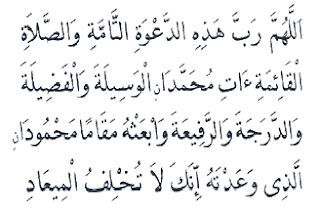 اَللّٰهُمَّ رَبَّ هَذِهِ الدَّعْوَةِ التَّامَّةِ وَالصَّلَاةِ
الْقَائِمَةِ ءَاتِ مُحَمَّدَانِ الْوَسِيلَةَ وَالْفَضِيلَةَ
وَالدَّرَجَةَ وَالرَّفِيعَةَ وَابْعَثْهُ مَقَامًا مَحْمُودَانِ
الَّذِى وَعَدْتَهُ إِنَّكَ لَا تُخْلِفُ الْمِيعَادِ